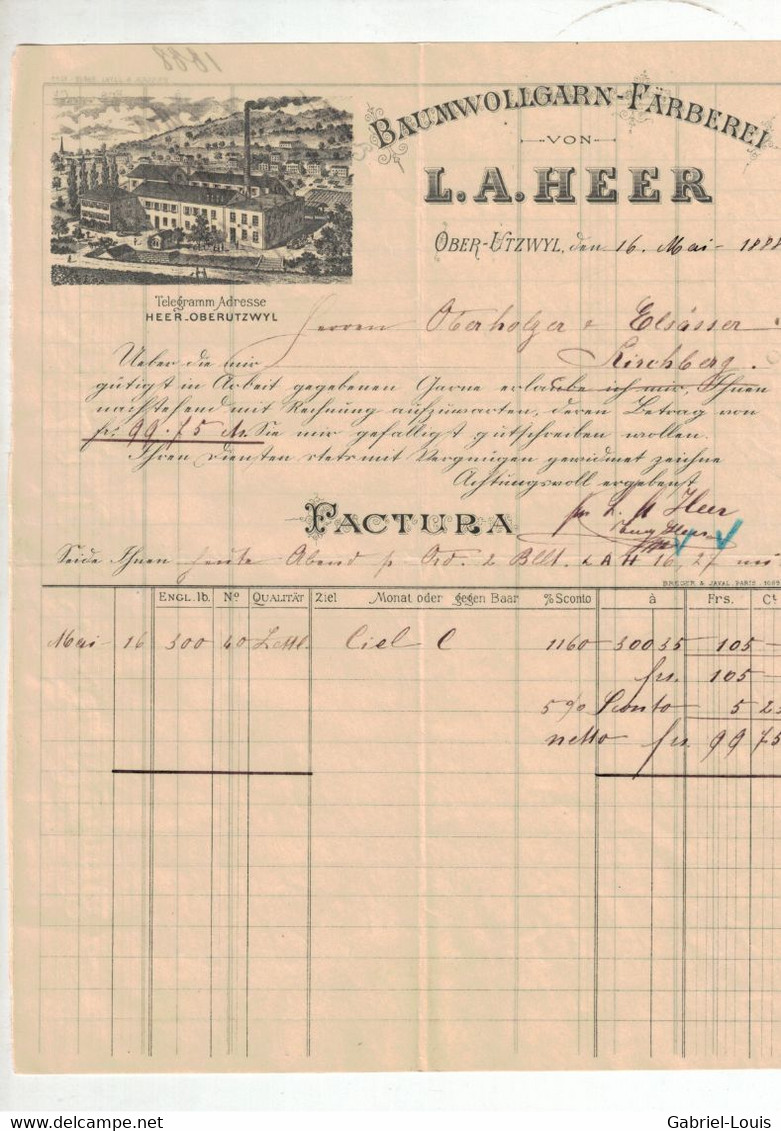 1888
BAUMWOLLGARN-FÄRBEREI
VON
L. A. HEER
OBER-UTZWYL, den 16. Mai 1888
Telegramm Adresse
HEER-OBERUTZWYL
Herren Oberholzer & Elsässer
Kirchberg.
Ueber die mir
gütigst in Arbeit gegebenen Garne erlaube ich mir, Ihnen
nachstehend mit Rechnung aufzuwarten, deren Betrag von
fr: 99.75 Sie mir gefälligst gutschreiben wollen.
Ihren Diensten stets mit Vergnügen gewidmet zeichne
Achtungsvoll ergebenst
L. A. Heer
FACTURA
Seide Ihnen heute Abend p. Ord. 2 Bllt. L A H 16, 27
BREGER & JAVAL PARIS
ENGL. lb. No QUALITÄT Ziel Monat oder gegen Baar % Sconto à Frs. Ct
Mai 16 300 40 Zettl. Ciel C 1160 300 35 105 —
frs. 105 —
5% Sconto 5 25
netto frs. 99 75
Gabriel-Louis